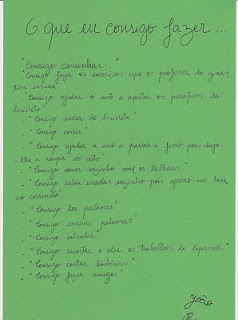 O que eu consigo fazer...
"Consigo caminhar"
"Consigo fazer os exercícios que o professor de ginás-
tica ensina"
"Consigo ajudar o avô a apertar os parafusos da
bicicleta"
"Consigo andar de bicicleta"
"Consigo correr"
"Consigo ajudar a avó a passar a ferro pois dispo-
lhe a roupa do cesto"
"Consigo comer sozinho com os talheres"
"Consigo subir escadas sozinho pois agarro-me bem
ao corrimão"
"Consigo ler palavras"
"Consigo escrever palavras"
"Consigo calcular"
"Consigo recortar e colar os trabalhos de Expressões"
"Consigo contar histórias"
"Consigo fazer amigos"
João
R.